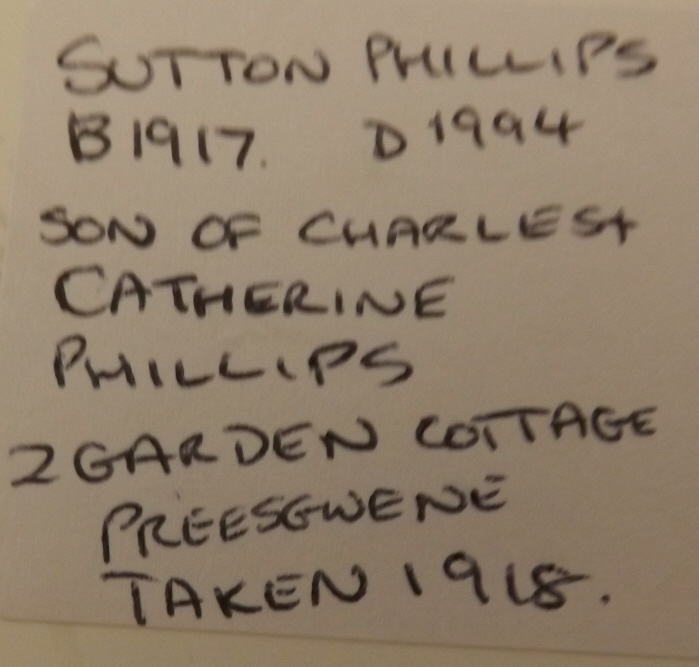 SUTTON PHILLIPS
B 1917. D 1994
SON OF CHARLES +
CATHERINE
PHILLIPS
2 GARDEN COTTAGE
PREESGWENE
TAKEN 1918.